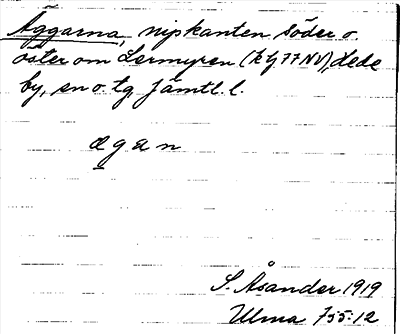 Äggarna, nipkanten söder o.
öster om Lermyren (k bj 77 NV), Dede
by, sn o. tg Jämtl. l.
ægan
S. Åsander 1919
Ulma 755:12